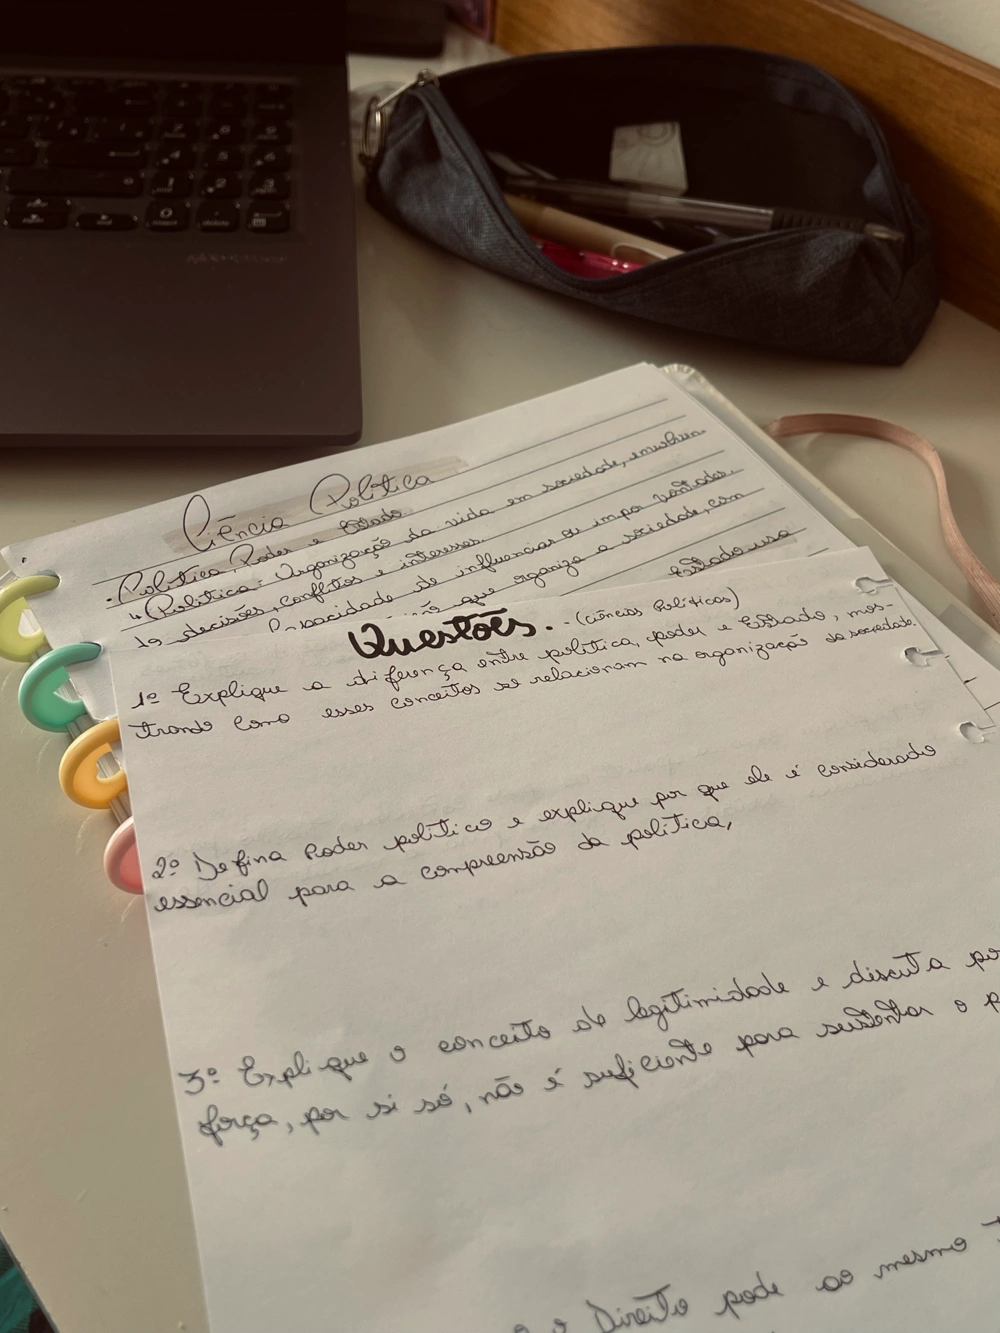 Ciência Política
. Política, Poder e Estado
↳ Política - Organização da vida em sociedade, envolven-
do decisões, conflitos e interesses.
capacidade de influenciar ou impor vontades.
que organiza a sociedade, com
Estado usa
Questões. - (Ciências Políticas)
1º Explique a diferença entre política, poder e Estado, mos-
trando como esses conceitos se relacionam na organização da sociedade.
2º Defina Poder político e explique por que ele é considerado
essencial para a compreensão da política,
3º Explique o conceito de legitimidade e discuta
força, por si só, não é suficiente para sustentar o
o Direito pode ao mesmo